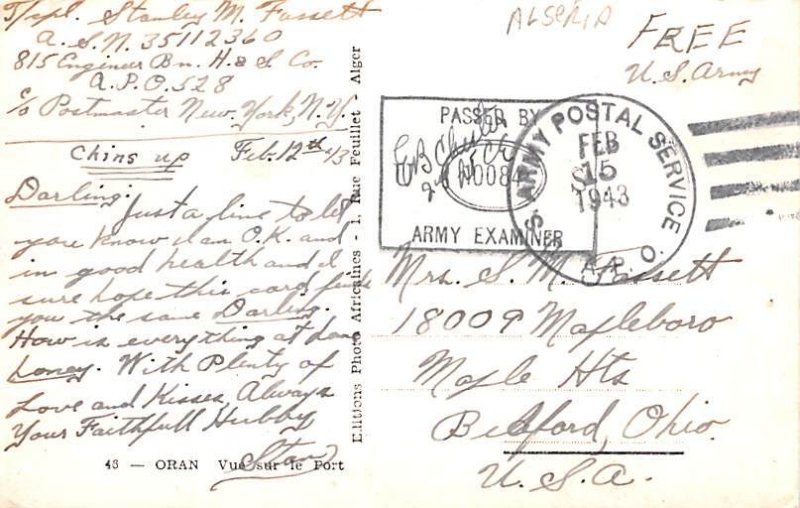 T/cpl. Stanley M. Fassett
A.S.N. 35112360
815 Engineer Bn. H. & S. Co.
A.P.O. 528
c/o Postmaster New York, N.Y.
Chins up Feb. 12th 43
Darling:
Just a line to let
you know I am O.K. and
in good health and I
sure hope this card finds
you the same Darling.
How is everything at home
honey. With Plenty of
Love and Kisses, Always
Your Faithfull Hubby
Stan
43 — ORAN Vue sur le Port
Editions Photo Africaines - 1, Rue Feuillet - Alger
ALGERIA
FREE
U.S. Army
PASSED BY
ARMY EXAMINER
U.S. ARMY POSTAL SERVICE
FEB
15
1943
A.P.O.
Mrs. S. M. Fassett
18009 Mapleboro
Maple Hts
Bedford, Ohio.
U.S.A.